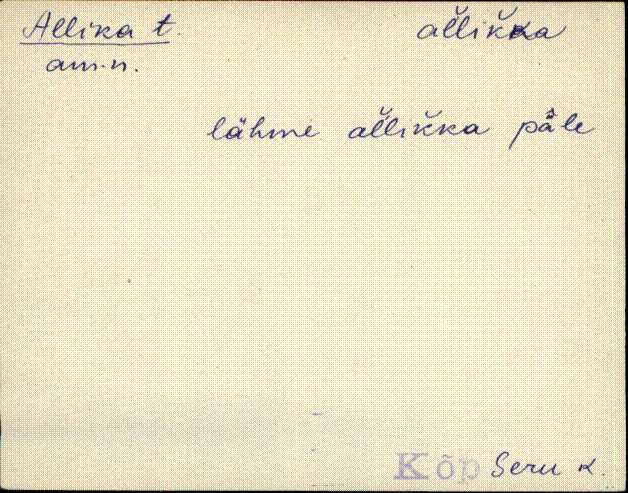 Allika t. al̆lik̆ka
am.n.
lähme al̆lik̆ka pä̂le
Kõp Seru k.